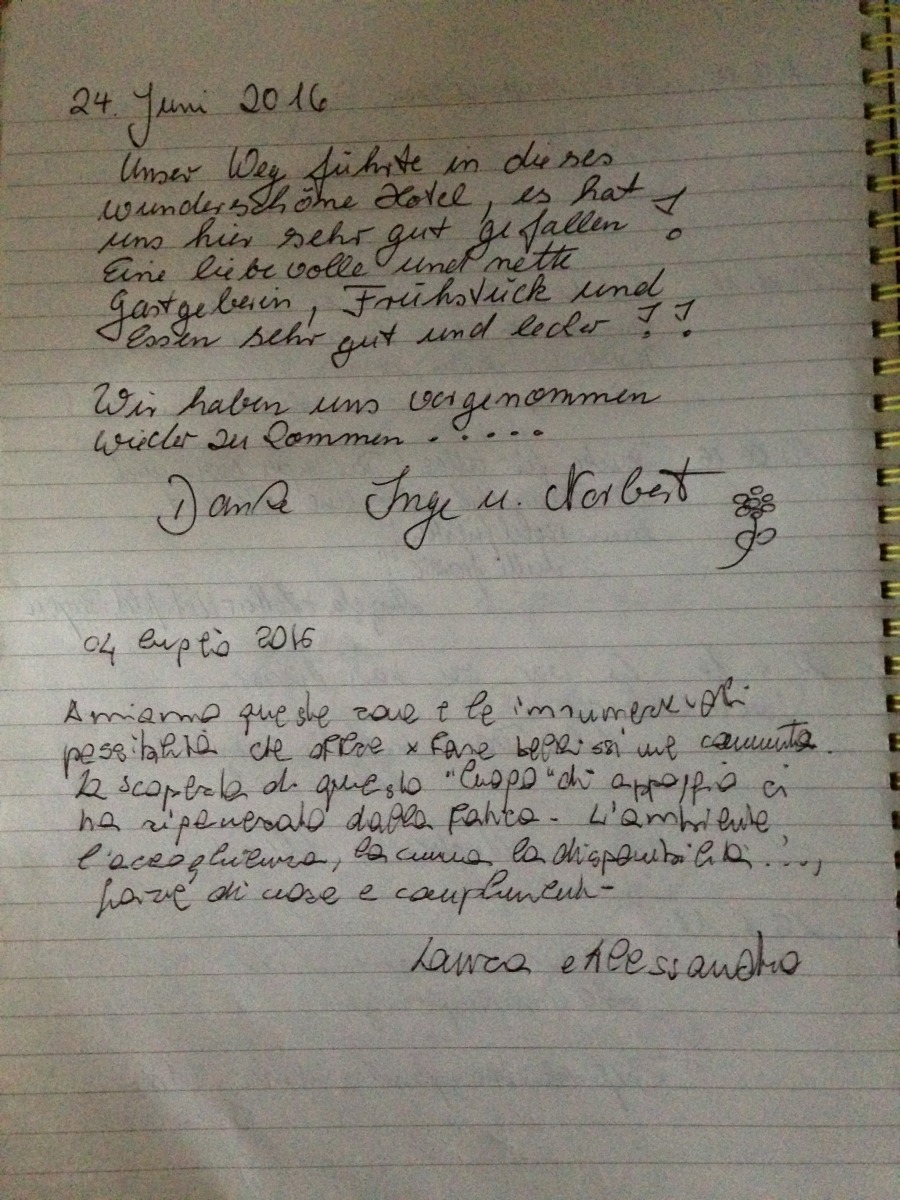 24. Juni 2016
Unser Weg führte in dieses
wunderschöne Hotel, es hat
uns hier sehr gut gefallen !
Eine liebevolle und nette
Gastgeberin, Frühstück und
Essen sehr gut und lecker !!
Wir haben uns vorgenommen
wieder zu kommen .....
Danke Inge u. Norbert
04 luglio 2016
Amiamo queste zone e le innumerevoli
possibilità che offre x fare bellissime camminate.
La scoperta di questo "luogo" di appoggio ci
ha rigenerato dalla fatica. L'ambiente
l'accoglienza, la cucina la disponibilità ...,
grazie di cuore e complimenti-
Laura e Alessandro